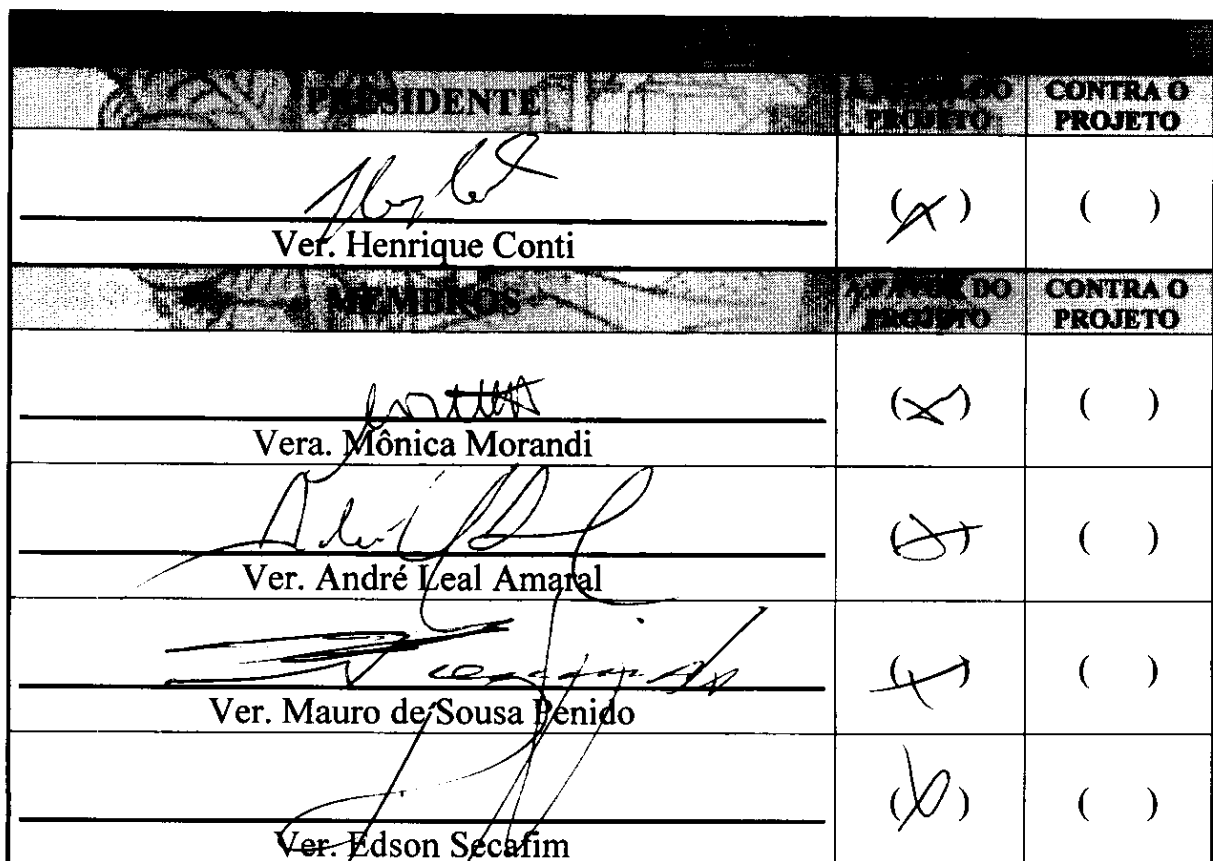 PRESIDENTE
A FAVOR DO PROJETO
CONTRA O PROJETO
Ver. Henrique Conti
(X) ( )
MEMBROS
A FAVOR DO PROJETO
CONTRA O PROJETO
Vera. Mônica Morandi
(X) ( )
Ver. André Leal Amaral
(X) ( )
Ver. Mauro de Sousa Penido
(X) ( )
Ver. Edson Secafim
(X) ( )